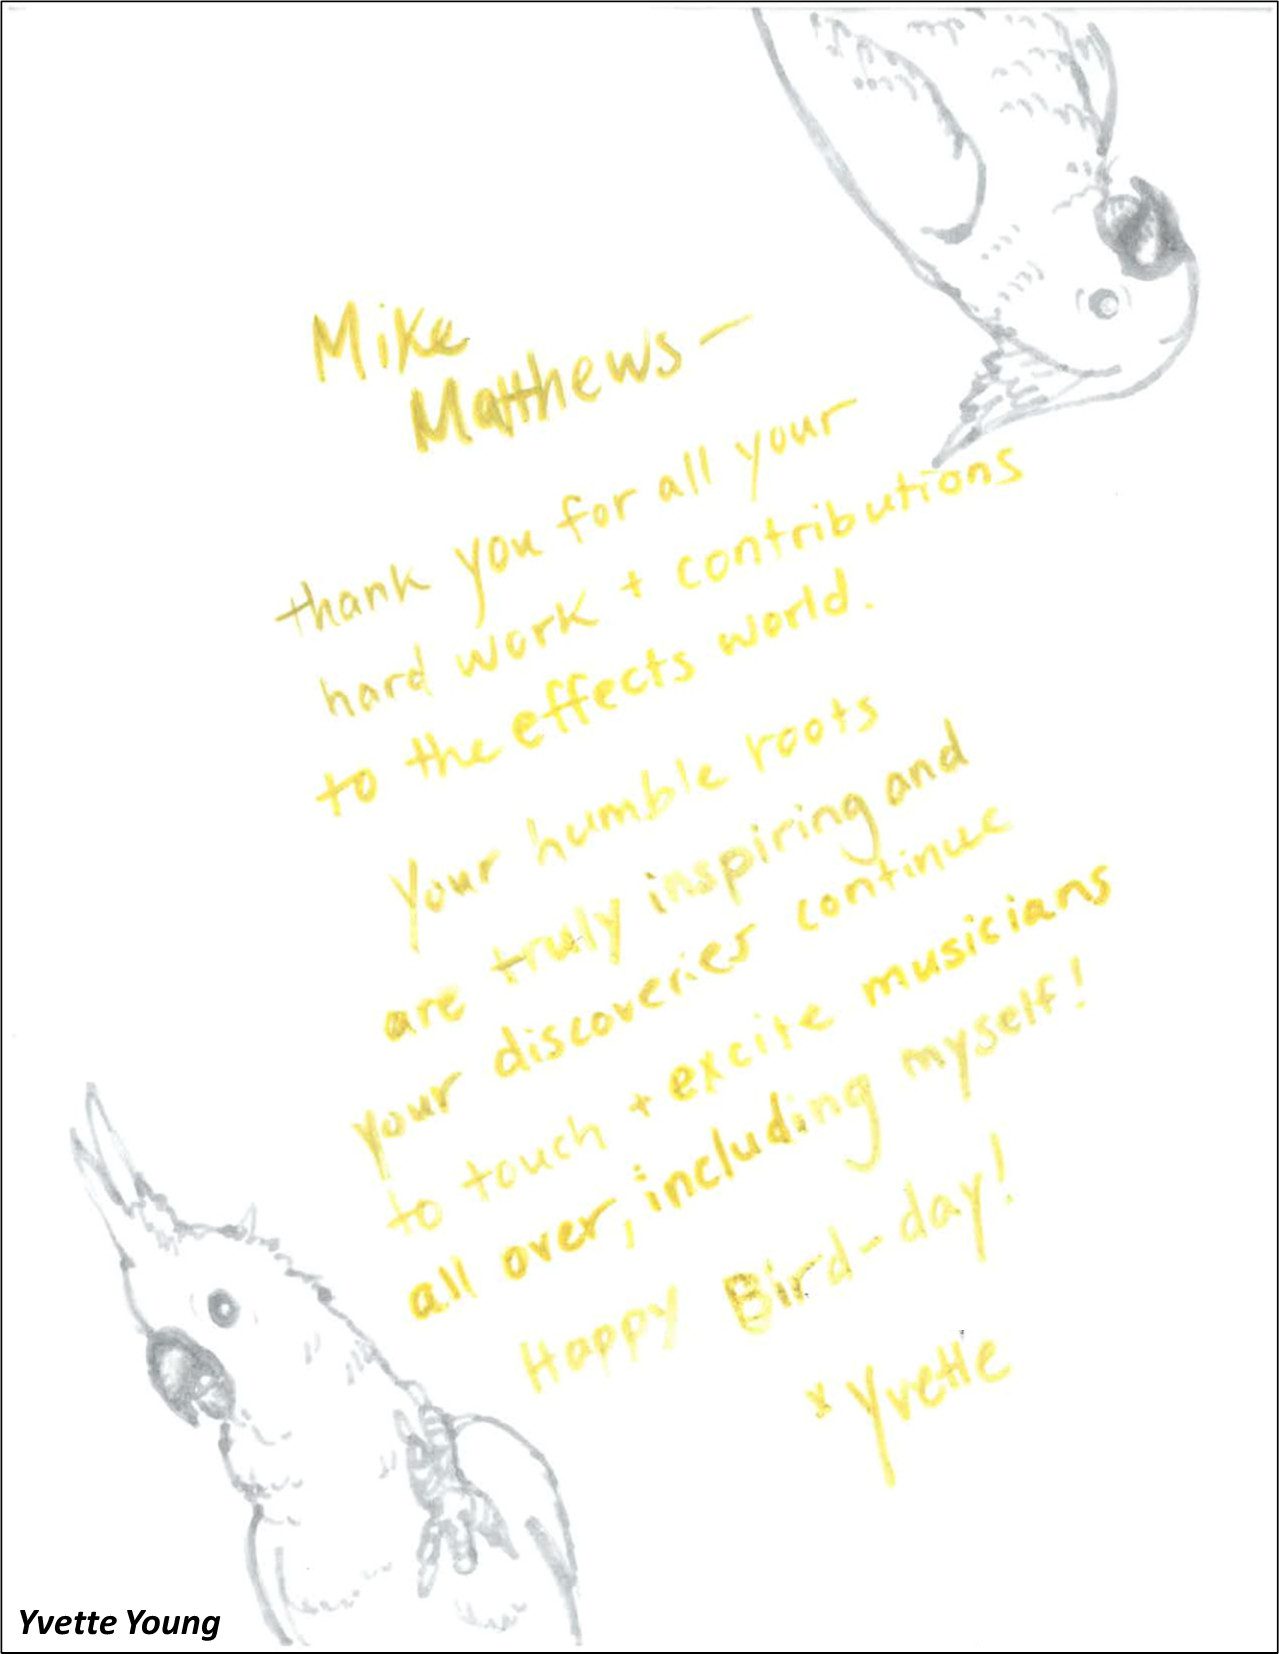 Mike
Matthews —
thank you for all your
hard work + contributions
to the effects world.
Your humble roots
are truly inspiring and
your discoveries continue
to touch + excite musicians
all over, including myself!
Happy Bird-day!
x Yvette
Yvette Young